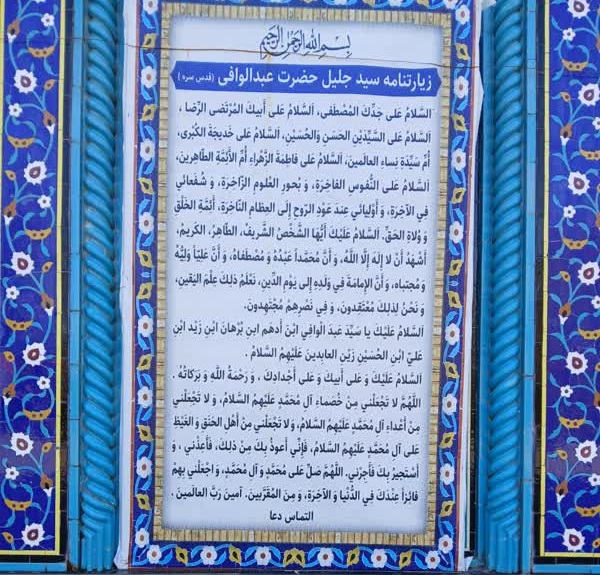 بسم الله الرحمن الرحیم
زیارتنامه سید جلیل حضرت عبدالوافی (قدس سره)
اَلسَّلامُ عَلی جَدِّكَ المُصْطَفی، اَلسَّلامُ عَلی أَبیكَ المُرْتَضَی الرِّضا ،
اَلسَّلامُ عَلَی السَّیِّدَیْنِ الحَسَنِ وَالحُسَیْنِ، اَلسَّلامُ عَلی خَدیجَةَ الکُبْری،
أُمِّ سَیِّدَةِ نِساءِ العالَمینَ، اَلسَّلامُ عَلی فاطِمَةَ الزَّهْراءِ أُمِّ الأَئِمَّةِ الطّاهِرینَ،
اَلسَّلامُ عَلَی النُّفُوسِ الفاخِرَةِ، وَ بُحورِ العُلومِ الزّاخِرَةِ، وَ شُفَعائي
فِي الآخِرَةِ، وَ أَوْلِیائي عِندَ عَوْدِ الرّوحِ إلَی العِظامِ النّاخِرَةِ، أَئِمَّةِ الخَلْقِ
وَ وُلاةِ الحَقِّ. اَلسَّلامُ عَلَیْكَ أَیُّهَا الشَّخْصُ الشَّریفُ، الطّاهِرُ، الکَریمُ،
أَشْهَدُ أَنْ لا إلهَ إلَّا اللّٰهُ، وَ أَنَّ مُحَمَّداً عَبْدُهُ وَ مُصْطَفاهُ، وَ أَنَّ عَلِیّاً وَلِیُّهُ
وَ مُجتَباه، وَ أَنَّ الإمامَةَ في وُلْدِهِ إلی یَوْمِ الدِّینِ، نَعْلَمُ ذلِكَ عِلْمَ الیَقینِ،
وَ نَحْنُ لِذلِكَ مُعْتَقِدونَ، وَ في نَصْرِهِمْ مُجْتَهِدونَ.
اَلسَّلامُ عَلَیْكَ یا سَیِّدَ عَبدَ الْوافي ابْنِ أَدهَم ابنِ بُرْهانَ ابْنِ زَیْد ابْنِ
عَلِيّ ابْنِ الحُسَیْنِ زَیْنِ العابدینَ عَلَیْهِمُ السَّلامُ .
اَلسَّلامُ عَلَیْكَ وَ عَلی أَبیكَ وَ عَلی أَجْدادِكَ ، وَ رَحْمَةُ اللّٰهِ وَ بَرَکاتُهُ .
اَللّٰهُمَّ لا تَجْعَلْني مِنْ خُصَماءِ آلِ مُحَمَّدٍ عَلَیْهِمُ السَّلامُ، وَ لا تَجْعَلْني
مِنْ أَعْداءِ آلِ مُحَمَّدٍ عَلَیْهِمُ السَّلامُ، وَ لا تَجْعَلْني مِنْ أَهْلِ الحَنَقِ وَ الغَیْظِ
عَلی آلِ مُحَمَّدٍ عَلَیْهِمُ السَّلامُ، فَإنّي أَعوذُ بِكَ مِنْ ذلِكَ، فَأَعِذْني ، وَ
أَسْتَجیرُ بِكَ فَأَجِرْني. اَللّٰهُمَّ صَلِّ عَلی مُحَمَّدٍ وَ آلِ مُحَمَّدٍ، وَ اجْعَلْني بِهِمْ
فائِزاً عِنْدَكَ فِي الدُّنْیا وَ الآخِرَةِ، وَ مِنَ المُقَرَّبینَ. آمینَ رَبَّ العالَمینَ .
التماس دعا